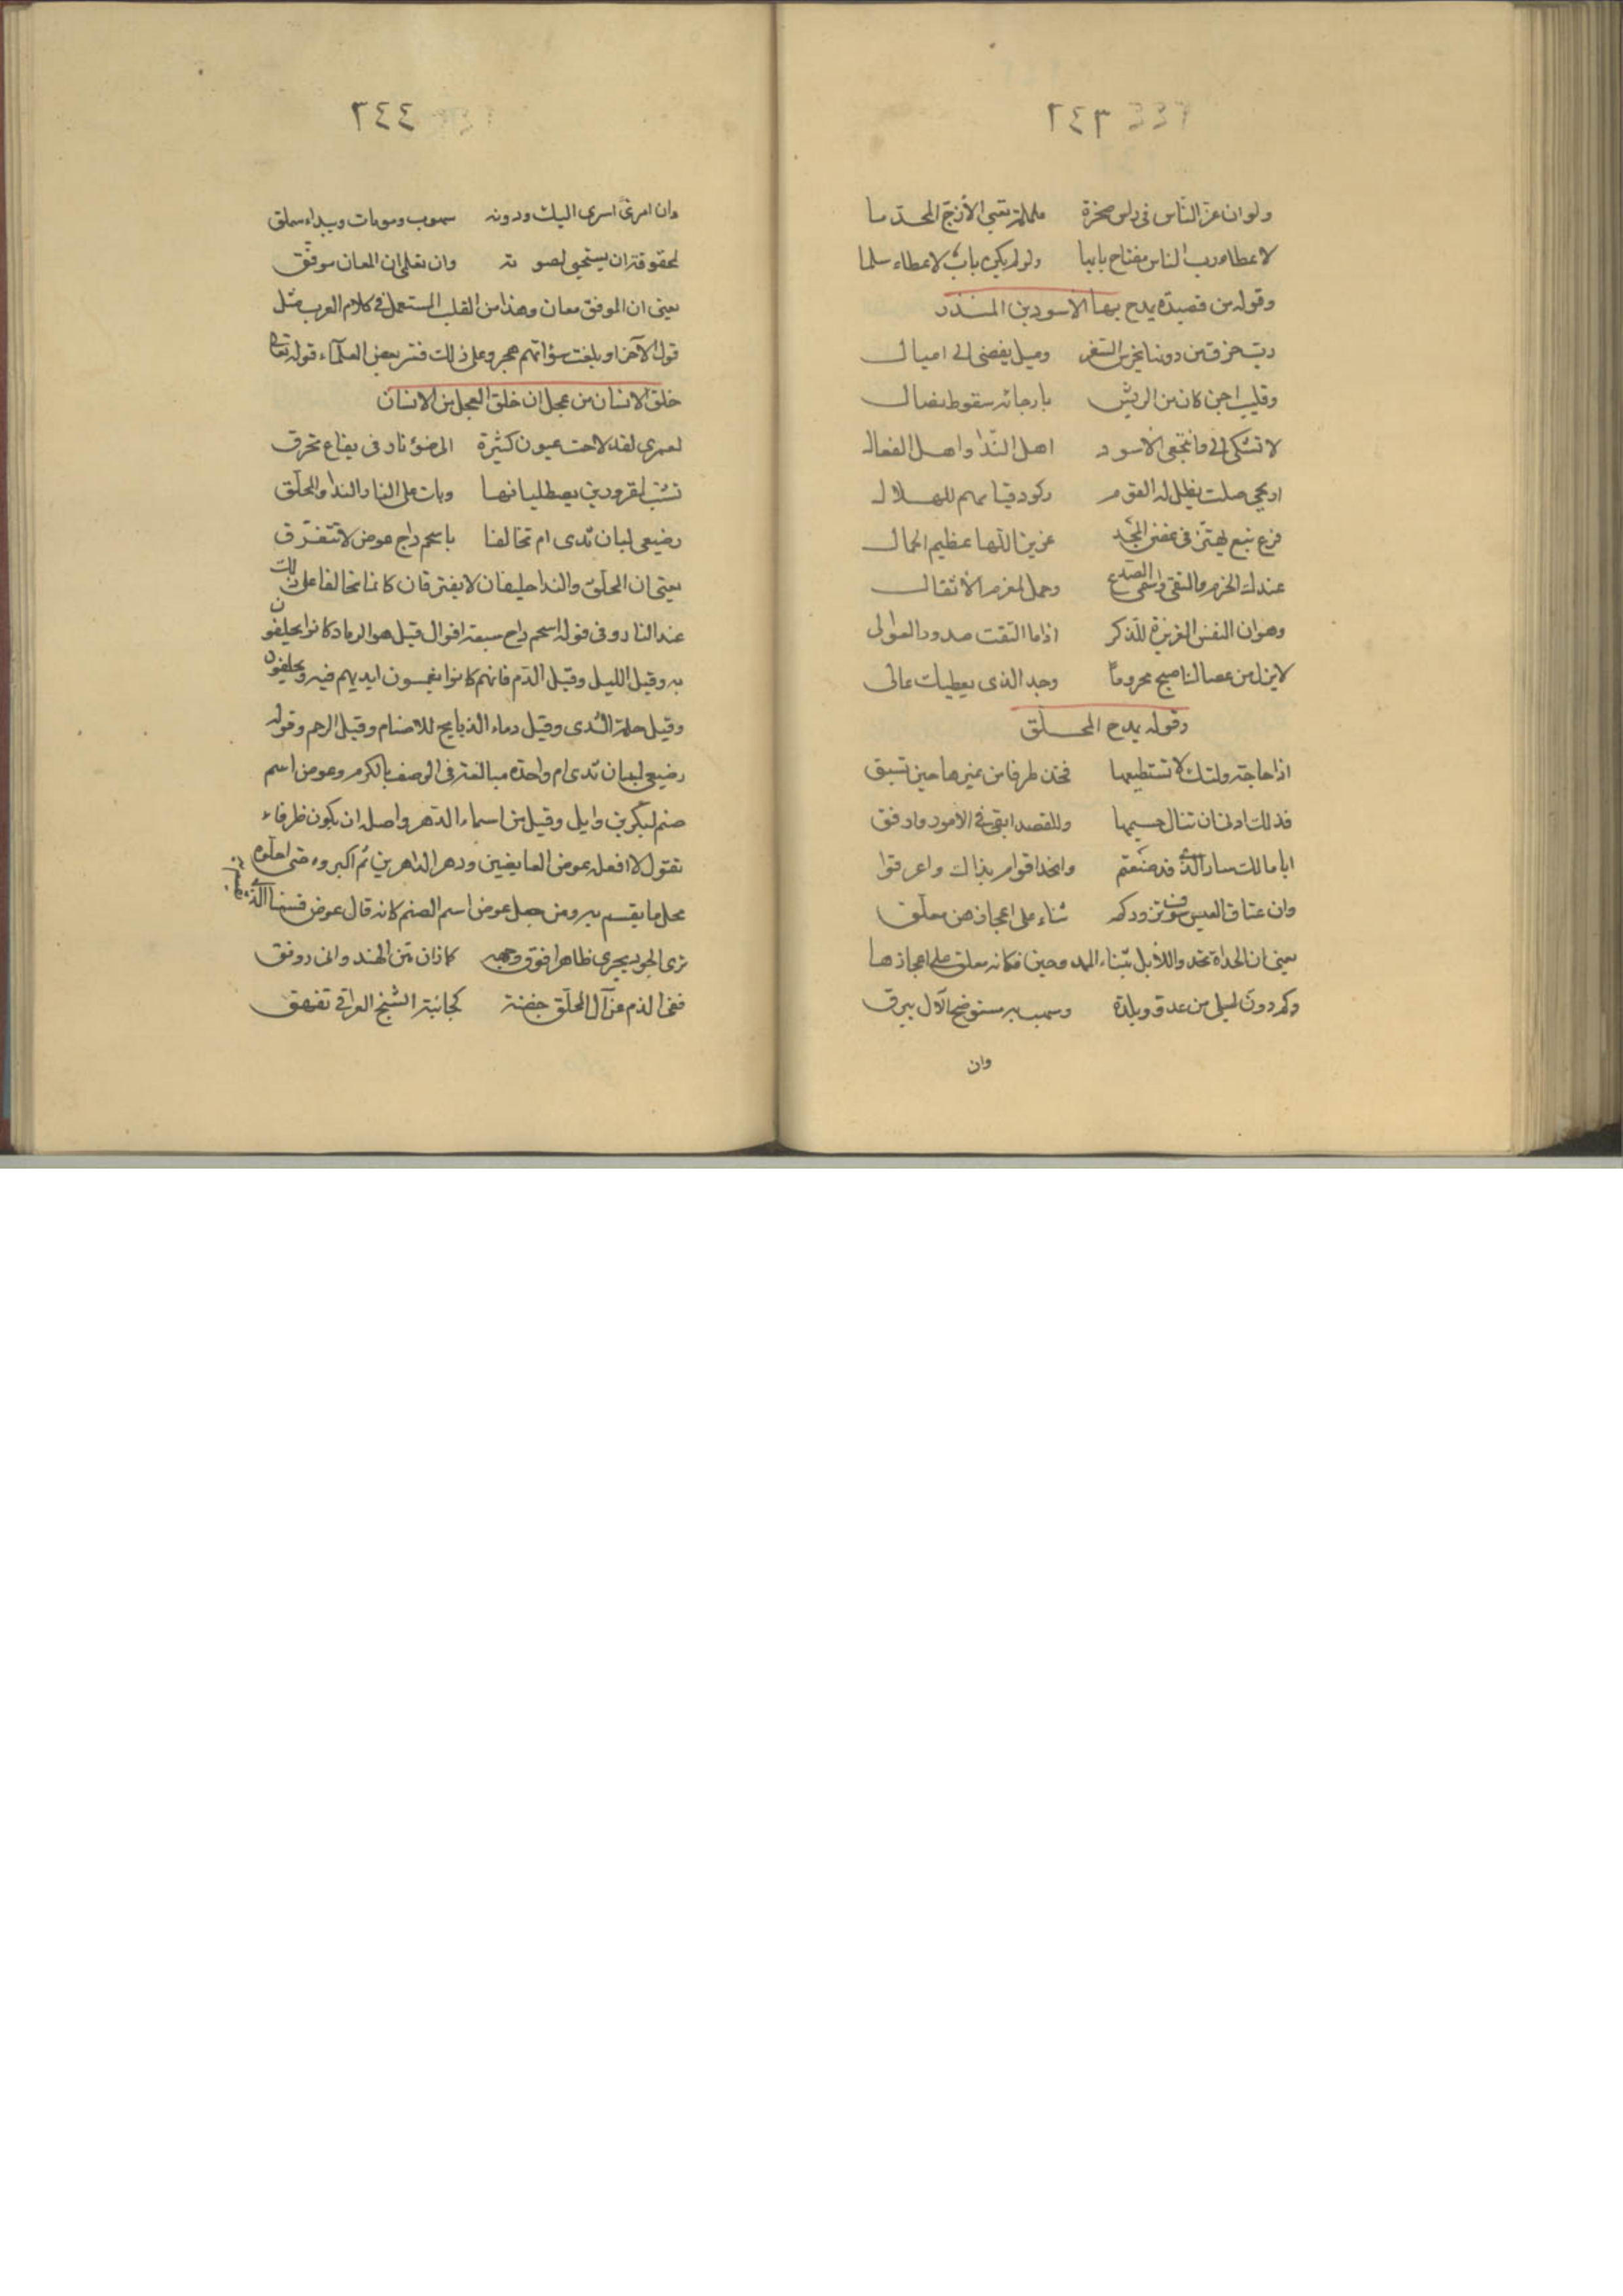 ٢٤٣
ولو ان عز الناس في راس صخرة ململمة تعيي الأزج المخدما
لاعطاه رب الناس مفتاح بابها ولو لم يكن باب لاعطاه سلما
وقوله من قصيدة يمدح بها الاسود بن المنذر
رب خرق من دونها يخرس السفر وميل يفضي الى اميال
وقليب اجن كان من الريش بارجائه سقوط نصال
لا تشكي الي وانتجعي الاسود اهل الندا واهل الفعال
اريحي صلت يظل له القوم ركود قيامهم للهلال
فرع نبع يهتز في غصن المجد عزيز اللها عظيم الجمال
عنده الحزم والتقى واسى الصدع وحمل لمغرم الأثقال
وهوان النفس العزيزة للذكر اذا ما التقت صدور العوالى
لايزل من عصا الناصح محروما وجد الذى يعطيك عالى
وقوله يمدح المحلق
اذا حاجة ولتك لا تستطيعها فخذ طرفا من غيرها حين تسبق
فذلك ادنى ان تنال جسيمها وللقصد ابقى في الأمور وارفق
ابا مالك سار الذي قد صنعتم وانجد اقوام بذاك واعرقوا
وان عتاق العيس سوف تزوركم ثناء على اعجازهن معلق
يعنى ان الحداة تحدوا للأبل بثناء الممدوحين فكانه معلق على اعجازها
وكم دون ليلى من عدو وبلدة وسهب به مستوضح الآل يبرق
وان
٢٤٤
وان امرئ اسرى اليك ودونه سهوب وموماة وبيداء سملق
لمحقوقة ان يستجيى لصوته وان تعلمى ان المعان موفق
يعنى ان الموفق معان وهذا من القلب المستعمل في كلام العرب مثل
قول الآخر او بلغت سؤاتهم هجر وعلى ذلك فسر بعض العلماء قوله تعالى
خلق الانسان من عجل ان خلق العجل من الانسان
لعمرى لقد لاحت عيون كثيرة الى ضوء نار فى يفاع تحرق
تشب لمقرورين يصطليانها وبات على النار الندا والمحلق
رضيعى لبان ثدى ام تحالفا باسحم داج عوض لا نتفرق
يعنى ان المحلق والندا حليفان لا يفترقان كانما تحالفا على ذلك
عند النار وفى قوله اسحم داج سبعة اقوال قيل هو الرماد كانوا يحلفون
به وقيل الليل وقيل الدم فانهم كانوا يغمسون ايديهم فيه ويحلفون
وقيل حلمة الثدى وقيل دماء الذبايح للاصنام وقيل الرحم وقوله
رضيعى لبان ثدى ام واحدة مبالغة فى الوصف بالكرم وعوض اسم
صنم لبكر بن وايل وقيل من اسماء الدهر واصله ان يكون ظرفا
تقول لا افعله عوض العايضين ودهر الداهرين ثم اكبروه حتى احلوه
محل ما يقسم به ومن جعل عوض اسم الصنم كانه قال عوض قسمنا الذى
ترى الجود يجرى ظاهرا فوق وجهه كما زان متن الهندوانى رونق
نفى الذم عن آل المحلق جفنة كجابية الشيخ العراقى تفهق